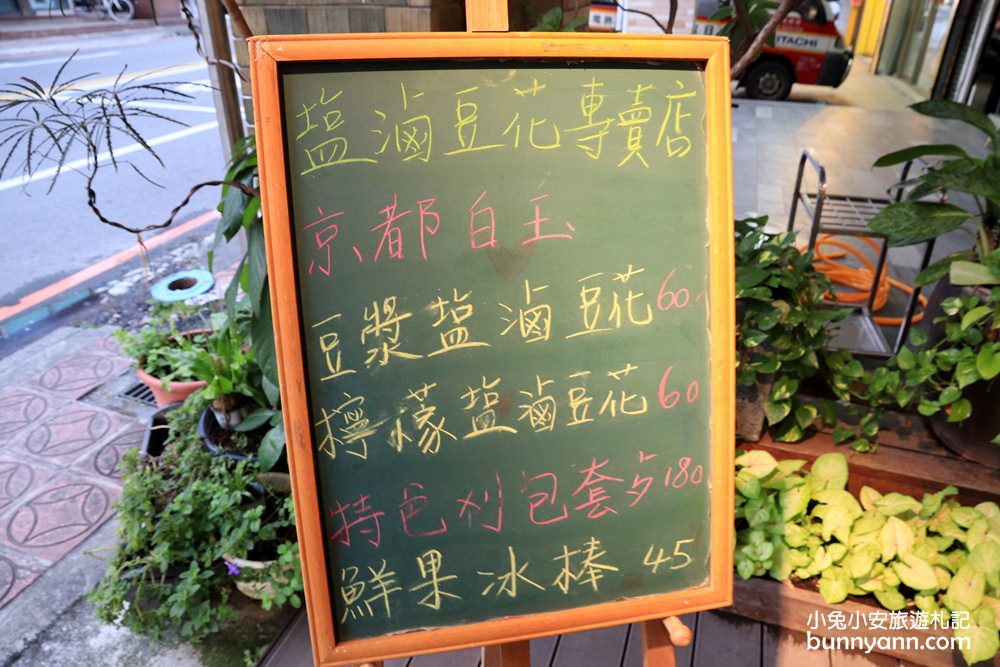 塩滷豆花專賣店
京都白玉
豆漿塩滷豆花60
檸檬塩滷豆花60
特色刈包套夕180
鮮果冰棒 45
HITACHI
小兔小安旅遊札記
bunnyann.com